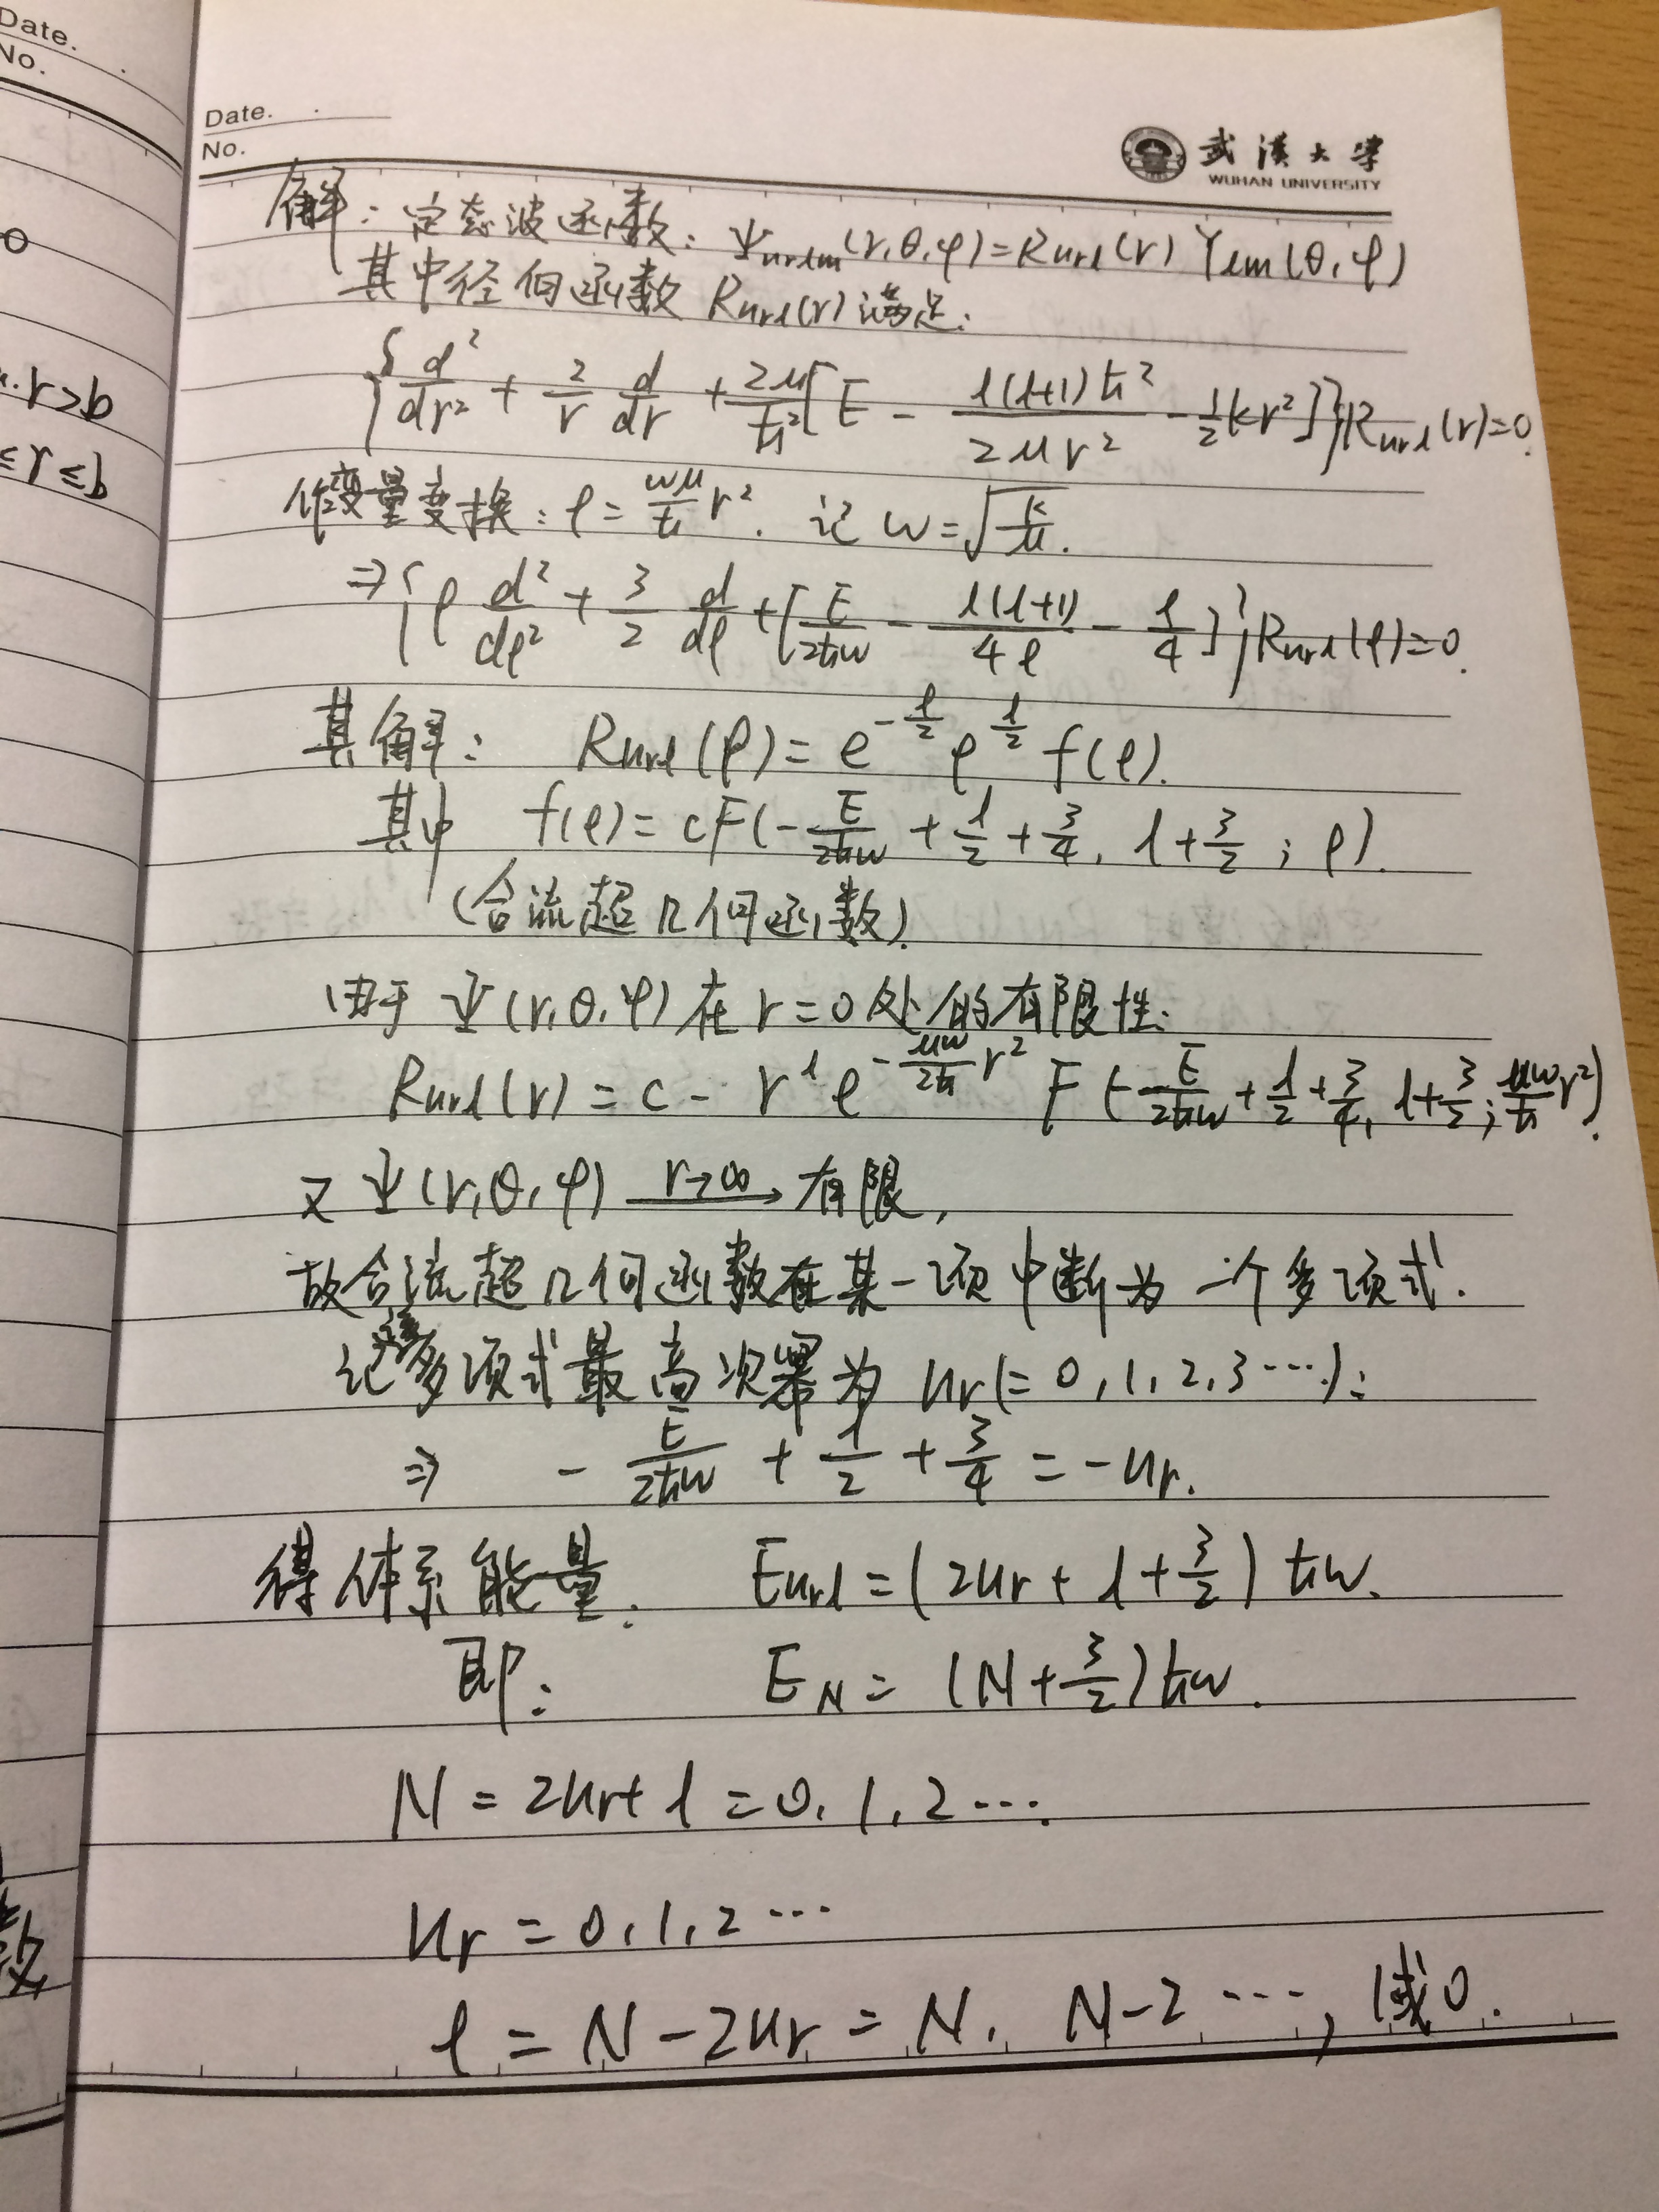 Date.
No.
o
r>b
≤r≤b
数
Date.
No.
武汉大学
WUHAN UNIVERSITY
解：定态波函数：ψnrlm(r,θ,φ)=Rnrl(r) Ylm(θ,φ)
其中径向函数 Rnrl(r) 满足：
{d²/dr² + 2/r d/dr + 2μ/ħ²[E - l(l+1)ħ²/2μr² - 1/2kr²]}Rnrl(r)=0.
作变量变换：ρ=ωμ/ħ r². 记 ω=√(k/μ).
⇒{ρ d²/dρ² + 3/2 d/dρ +[E/2ħω - l(l+1)/4ρ - ρ/4]}Rnrl(ρ)=0.
其解： Rnrl(ρ)=e^(-ρ/2) ρ^(l/2) f(ρ).
其中 f(ρ)=cF(-E/2ħω + l/2 + 3/4, l+3/2; ρ).
(合流超几何函数).
由于 ψ(r,θ,φ)在 r=0处的有限性：
Rnrl(r) = c - r^l e^(-μω/2ħ r²) F(-E/2ħω + l/2 + 3/4, l+3/2; μω/ħ r²).
又 ψ(r,θ,φ) r→∞→ 有限,
故合流超几何函数在某一项中断为一个多项式.
记该多项式最高次幂为 nr(=0,1,2,3…)：
⇒ - E/2ħω + l/2 + 3/4 = -nr.
得体系能量： Enrl=(2nr+l+3/2)ħω.
即： EN = (N+3/2)ħω.
N = 2nr+l =0,1,2….
nr = 0,1,2…
l = N-2nr = N, N-2 …, 1或0.